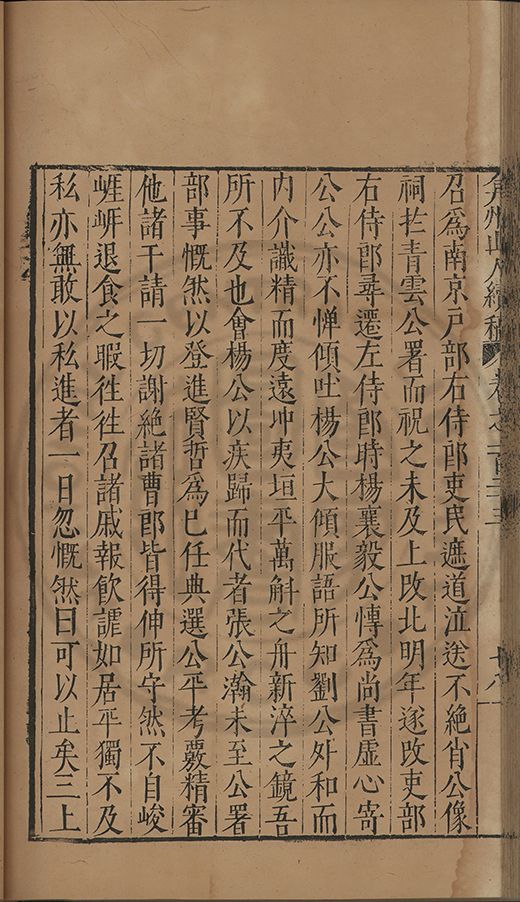 弇州山人續稿 卷之一百三十三 十八
召為南京戶部右侍郎吏民遮道泣送不絕肖公像
祠於青雲公署而祝之未及上改北明年遂改吏部
右侍郎尋遷左侍郎時楊襄毅公慱為尚書虛心寄
公公亦不憚傾吐楊公大傾服語所知劉公外和而
內介識精而度遠坤夷垣平萬斛之舟新淬之鏡吾
所不及也會楊公以疾歸而代者張公瀚未至公署
部事慨然以登進賢哲為巳任典選公平考覈精審
他諸干請一切謝絕諸曹郎皆得伸所守然不自峻
崕岍退食之暇徃徃召諸戚報飲謔如居平獨不及
私亦無敢以私進者一日忽慨然曰可以止矣三上